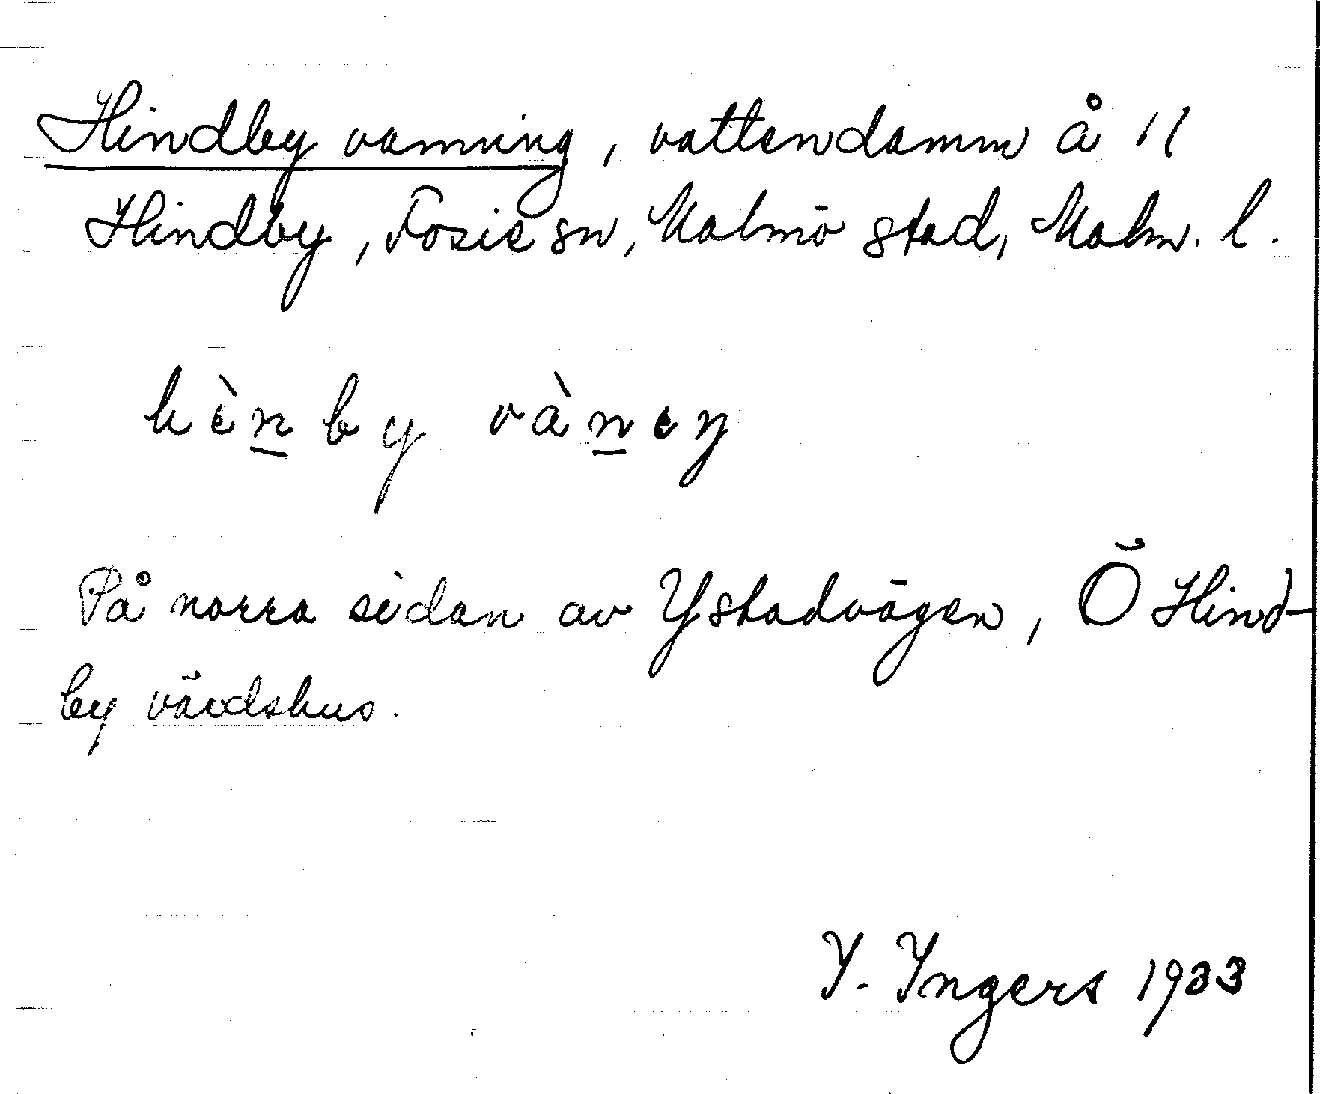 Hindby vanning, vattendamm å 11
Hindby, Fosie sn, Malmö stad, Malm. l.
hèn̲by vàn̲eŋ
På norra sidan av Ystadvägen, Ö Hind-
by värdshus.
I. Ingers 1933